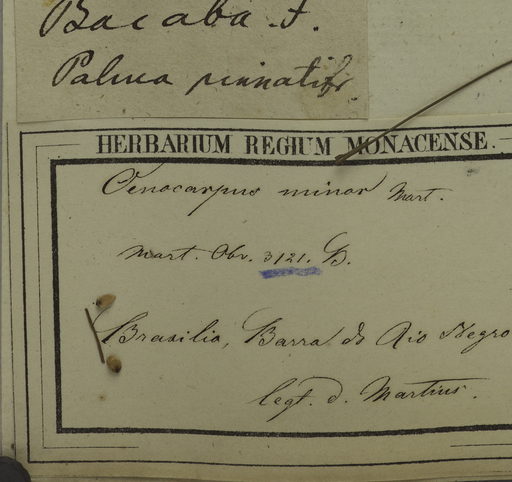 Bacaba. F.
Palma pinnatif
HERBARIUM REGIUM MONACENSE.
Oenocarpus minor Mart.
Mart. Obs. 3121. B.
Brasilia, Barra do Rio Negro
legt. d. Martius.